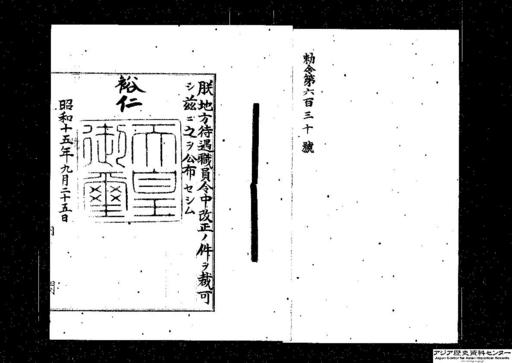 勅令第六百三十號
朕地方待遇職員令中改正ノ件ヲ裁可
シ茲ニ之ヲ公布セシム
裕仁
天皇御璽
昭和十五年九月二十五日
アジア歴史資料センター
Japan Center for Asian Historical Records